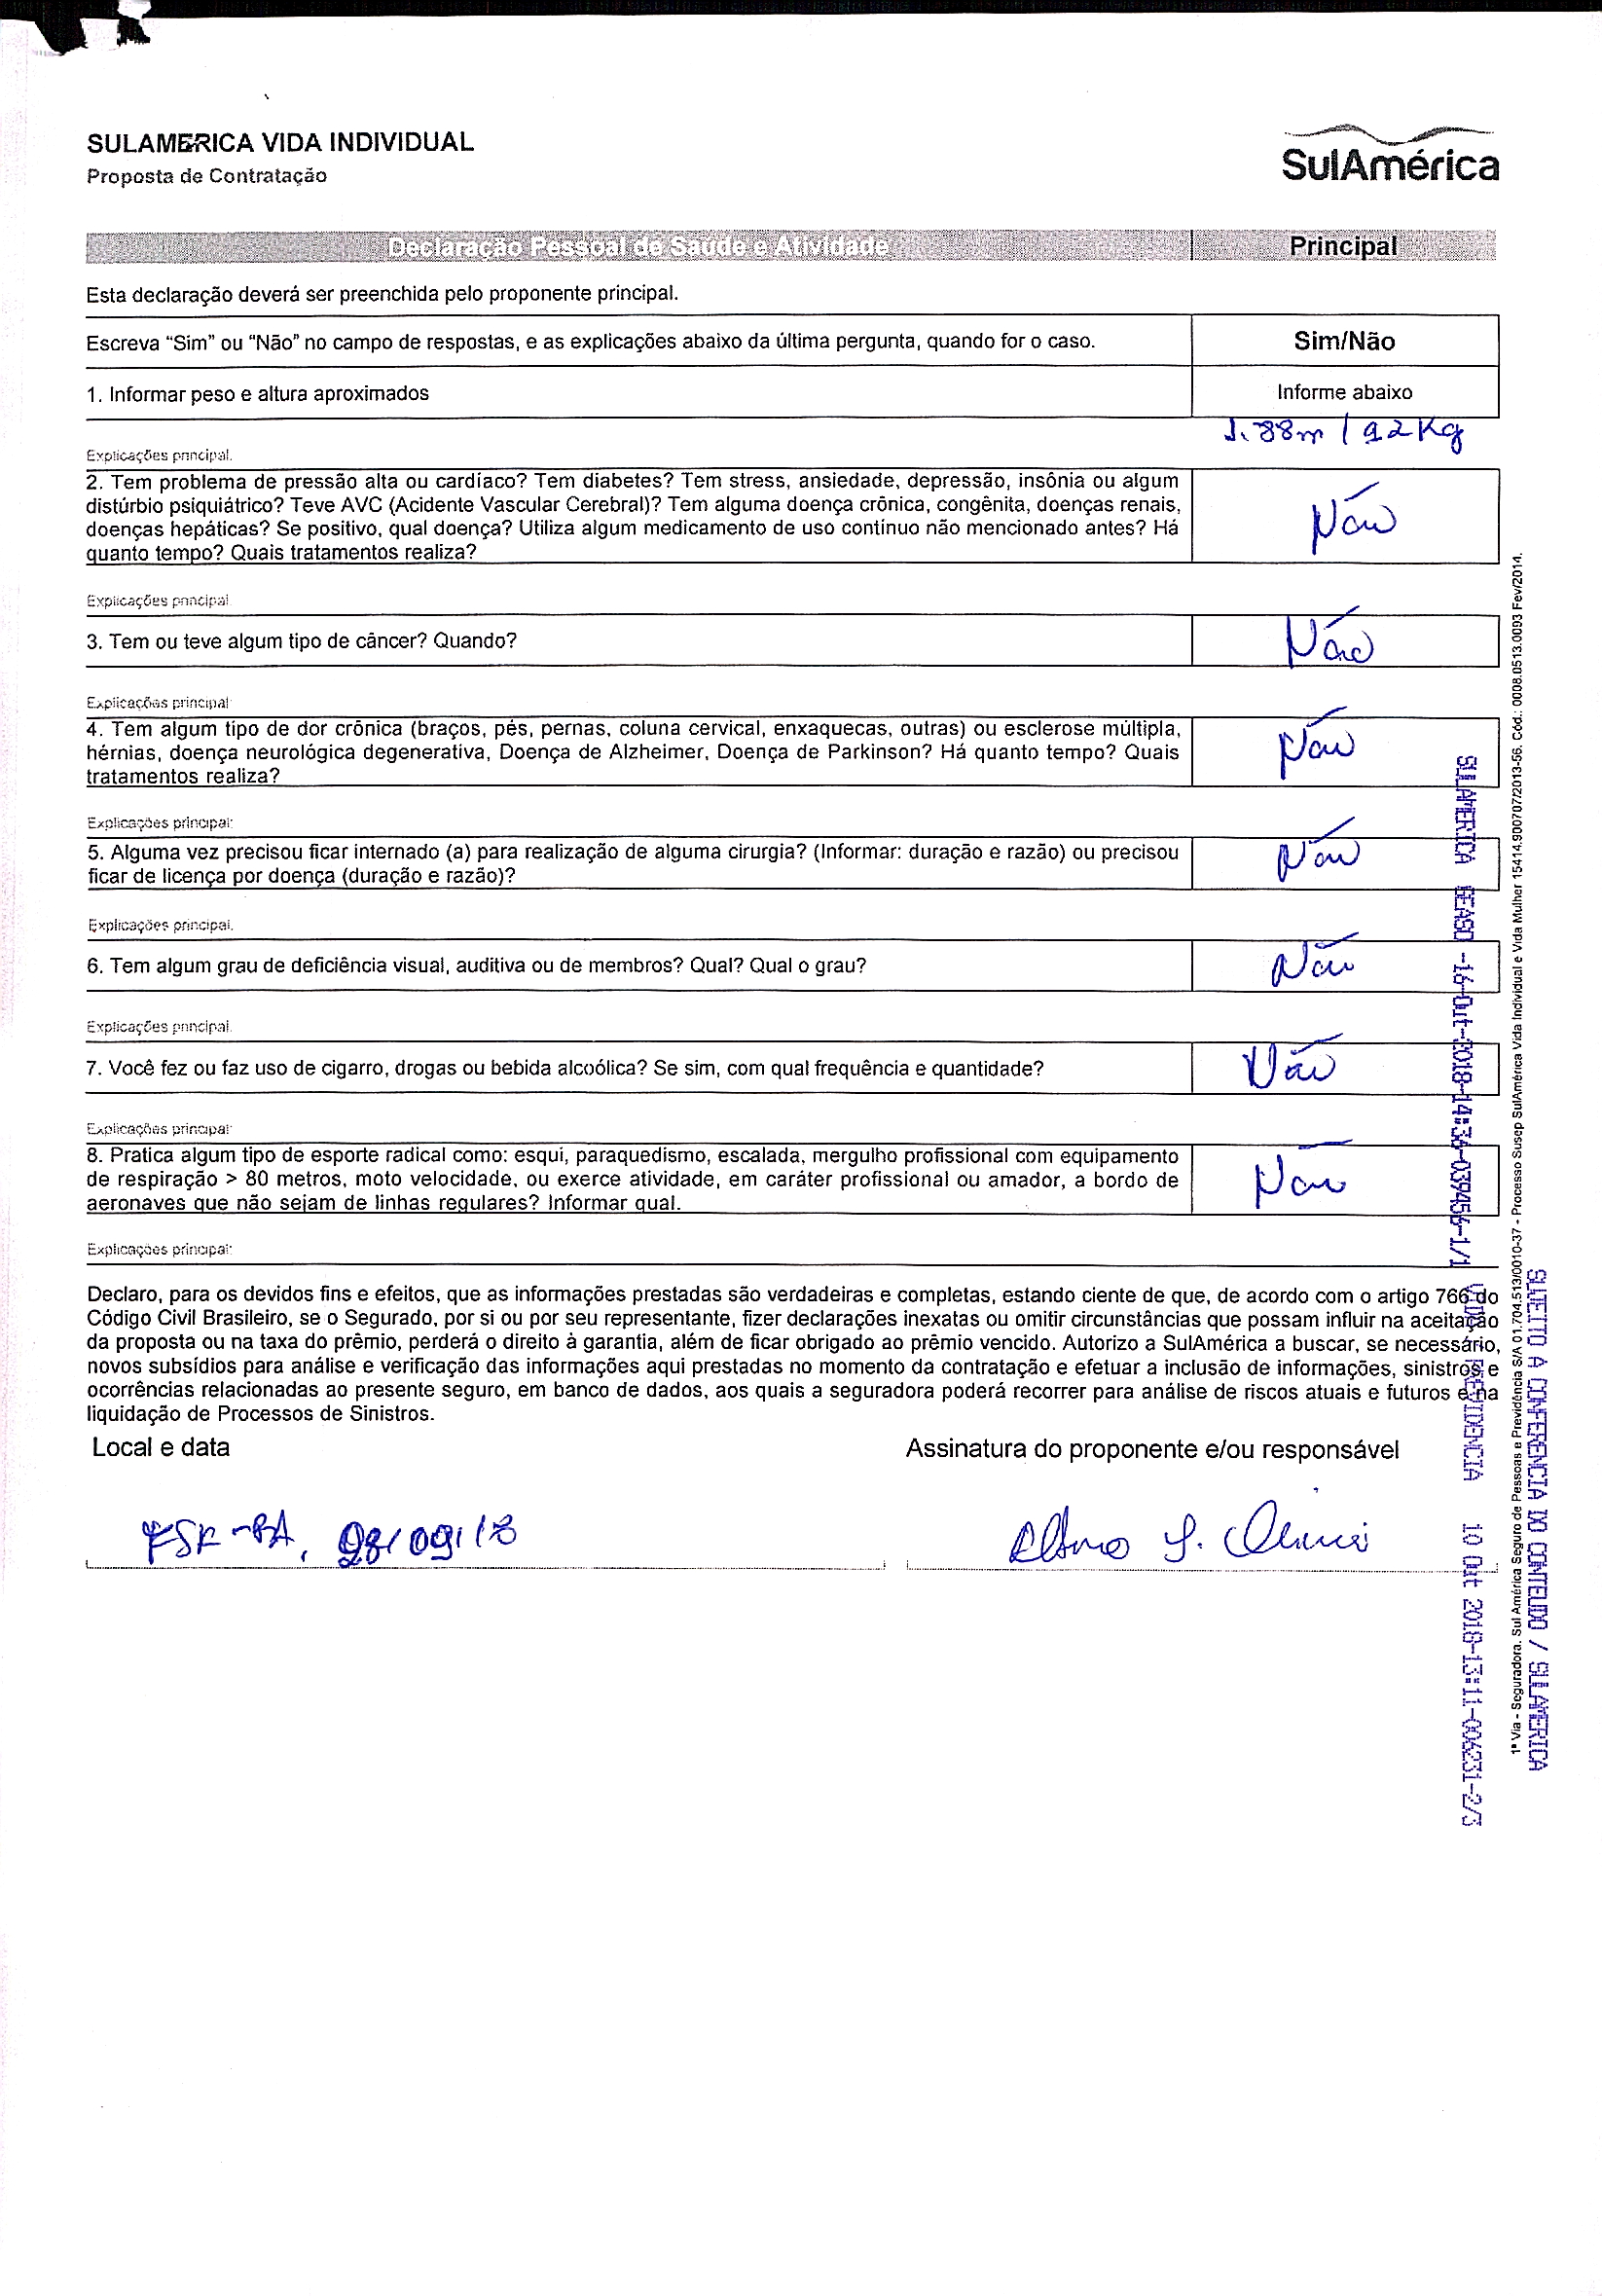 SULAMERICA VIDA INDIVIDUAL
Proposta de Contratação
SulAmérica
Declaração Pessoal de Saúde e Atividade Principal
Esta declaração deverá ser preenchida pelo proponente principal.
Escreva “Sim” ou “Não” no campo de respostas, e as explicações abaixo da última pergunta, quando for o caso. Sim/Não
1. Informar peso e altura aproximados Informe abaixo
1.88m / 92Kg
Explicações principal.
2. Tem problema de pressão alta ou cardíaco? Tem diabetes? Tem stress, ansiedade, depressão, insônia ou algum
distúrbio psiquiátrico? Teve AVC (Acidente Vascular Cerebral)? Tem alguma doença crônica, congênita, doenças renais,
doenças hepáticas? Se positivo, qual doença? Utiliza algum medicamento de uso contínuo não mencionado antes? Há
quanto tempo? Quais tratamentos realiza?
Não
Explicações principal
3. Tem ou teve algum tipo de câncer? Quando? Não
Explicações principal
4. Tem algum tipo de dor crônica (braços, pés, pernas, coluna cervical, enxaquecas, outras) ou esclerose múltipla,
hérnias, doença neurológica degenerativa, Doença de Alzheimer, Doença de Parkinson? Há quanto tempo? Quais
tratamentos realiza?
Não
Explicações principal:
5. Alguma vez precisou ficar internado (a) para realização de alguma cirurgia? (Informar: duração e razão) ou precisou
ficar de licença por doença (duração e razão)?
Não
Explicações principal.
6. Tem algum grau de deficiência visual, auditiva ou de membros? Qual? Qual o grau? Não
Explicações principal.
7. Você fez ou faz uso de cigarro, drogas ou bebida alcoólica? Se sim, com qual frequência e quantidade? Não
Explicações principal:
8. Pratica algum tipo de esporte radical como: esqui, paraquedismo, escalada, mergulho profissional com equipamento
de respiração > 80 metros, moto velocidade, ou exerce atividade, em caráter profissional ou amador, a bordo de
aeronaves que não sejam de linhas regulares? Informar qual.
Não
Explicações principal:
Declaro, para os devidos fins e efeitos, que as informações prestadas são verdadeiras e completas, estando ciente de que, de acordo com o artigo 766 do
Código Civil Brasileiro, se o Segurado, por si ou por seu representante, fizer declarações inexatas ou omitir circunstâncias que possam influir na aceitação
da proposta ou na taxa do prêmio, perderá o direito à garantia, além de ficar obrigado ao prêmio vencido. Autorizo a SulAmérica a buscar, se necessário,
novos subsídios para análise e verificação das informações aqui prestadas no momento da contratação e efetuar a inclusão de informações, sinistros e
ocorrências relacionadas ao presente seguro, em banco de dados, aos quais a seguradora poderá recorrer para análise de riscos atuais e futuros e na
liquidação de Processos de Sinistros.
Local e data Assinatura do proponente e/ou responsável
-BA, 28/09/18
SULAMERICA GEASO -16-Out-2018-14:36-039456-1/1
VIDA PREVIDENCIA 10 Out 2018-13:11-006231-2/3
1ª Via - Seguradora. Sul América Seguro de Pessoas e Previdência S/A 01.704.513/0010-37 - Processo Susep SulAmérica Vida Individual e Vida Mulher 15414.900707/2013-56. Cód.: 0008.0513.0093 Fev/2014.
SUJEITO A CONFERENCIA DO CONTEUDO / SULAMERICA